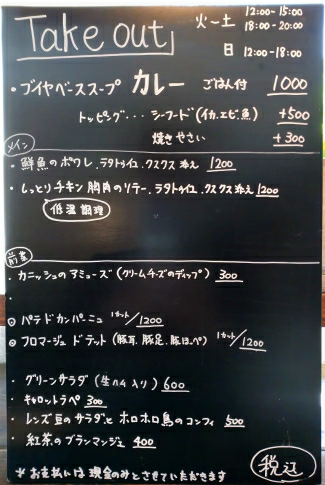 Take out
火-土 12:00-15:00
18:00-20:00
日 12:00-18:00
・ブイヤベーススープ カレー ごはん付 1000
トッピング・・・シーフード(イカ、エビ、魚) +500
焼きやさい +300
メイン
・鮮魚のポワレ、ラタトゥイユ、クスクス添え 1200
・しっとりチキン胸肉のソテー、ラタトゥイユ、クスクス添え 1200
低温調理
前菜
・カニッシュのアミューズ(クリームチーズのディップ) 300
◎パテドカンパーニュ 1カット/1200
◎フロマージュ ドテット(豚耳、豚足、豚ほっぺ) 1カット/1200
・グリーンサラダ(生ハム入り) 600
・キャロットラペ 300
・レンズ豆のサラダと ホロホロ鳥のコンフィ 500
・紅茶のブランマンジェ 400
税込
※お支払いは現金のみとさせていただきます